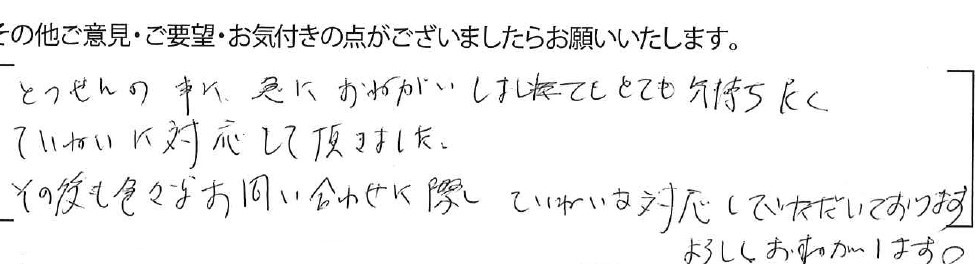 その他ご意見・ご要望・お気付きの点がございましたらお願いいたします。
とつぜんの事に、急に おねがいしましたが とても気持ちよく
ていねいに対応して頂きました。
その後も色々なお問い合わせに際し ていねいな対応していただいております
よろしくおねがいします。